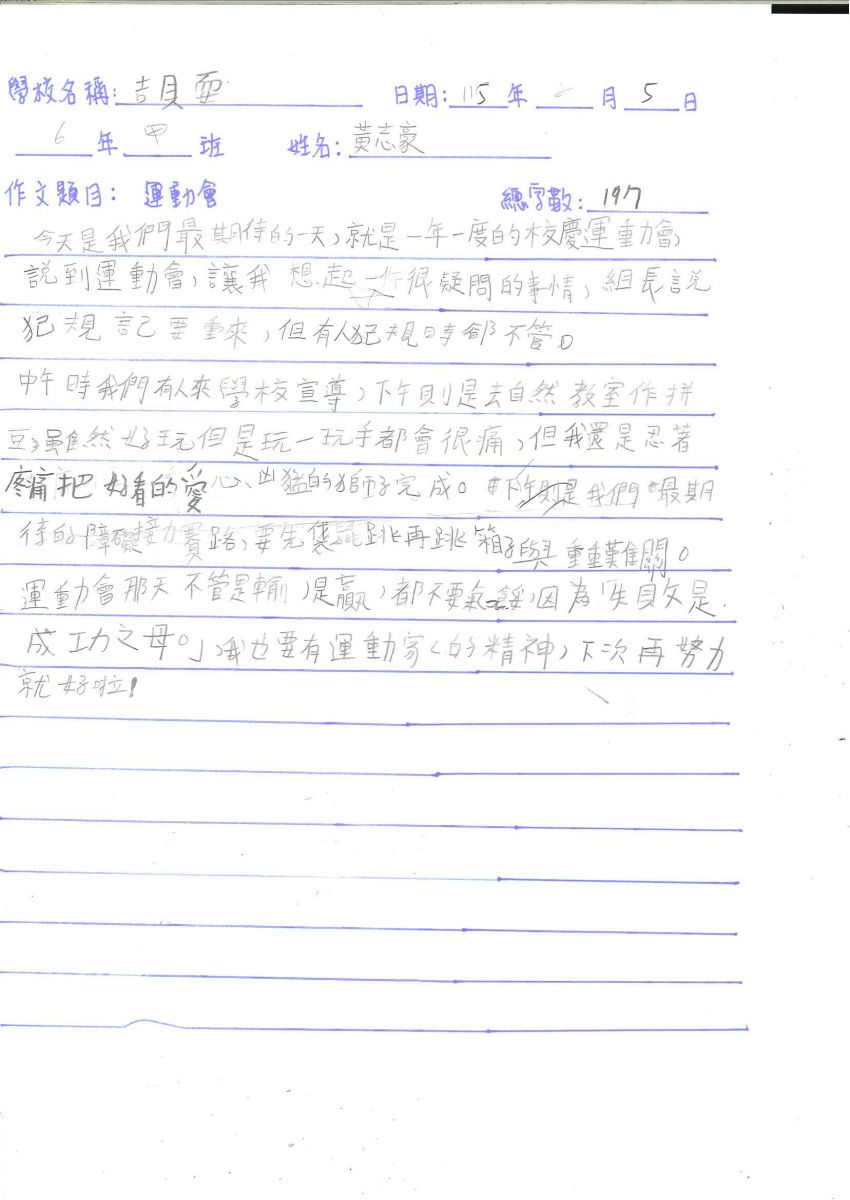 學校名稱:吉貝耍 日期:115年2月5日
6年甲班 姓名:黃志豪
作文題目:運動會 總字數:197
今天是我們最期待的一天,就是一年一度的校慶運動會,
說到運動會,讓我想起一件很疑問的事情,組長說
犯規記要重來,但有人犯規時都不管。
中午時我們有人來學校宣導,下午則是去自然教室作拼
豆,雖然好玩但是玩一玩手都會很痛,但我還是忍著
疼痛把好看的愛心、凶猛的獅子完成。下午則是我們最期
待的障礙接力賽路,要先袋鼠跳再跳箱子與重重難關。
運動會那天不管是輸,是贏,都不要氣餒,因為「失敗是
成功之母。」,我也要有運動家的精神,下次再努力
就好啦!